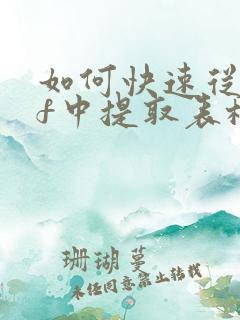 如何快速从
f中提取表格
珊瑚蔓
未经同意禁止转载